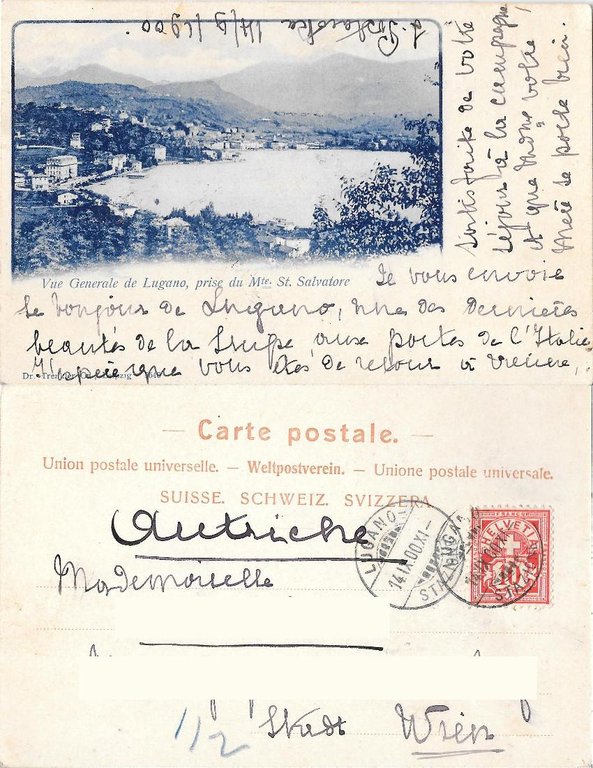 14/9/1900.
Vue Generale de Lugano, prise du Mte. St. Salvatore
Je vous envoie
le bonjour de Lugano, une des dernières
beautés de la Suisse aux portes de l'Italie
J'espère que vous êtes de retour à Vienne,
satisfaite de votre
séjour à la campagne,
et que Mme votre
mère se porte bien.
— Carte postale. —
Union postale universelle. — Weltpostverein. — Unione postale universale.
SUISSE. SCHWEIZ. SVIZZERA
Autriche
LUGANO
14.IX.00.XI-
HELVETIA
FRANCO
10
Mademoiselle
1/2 Stadt Wien